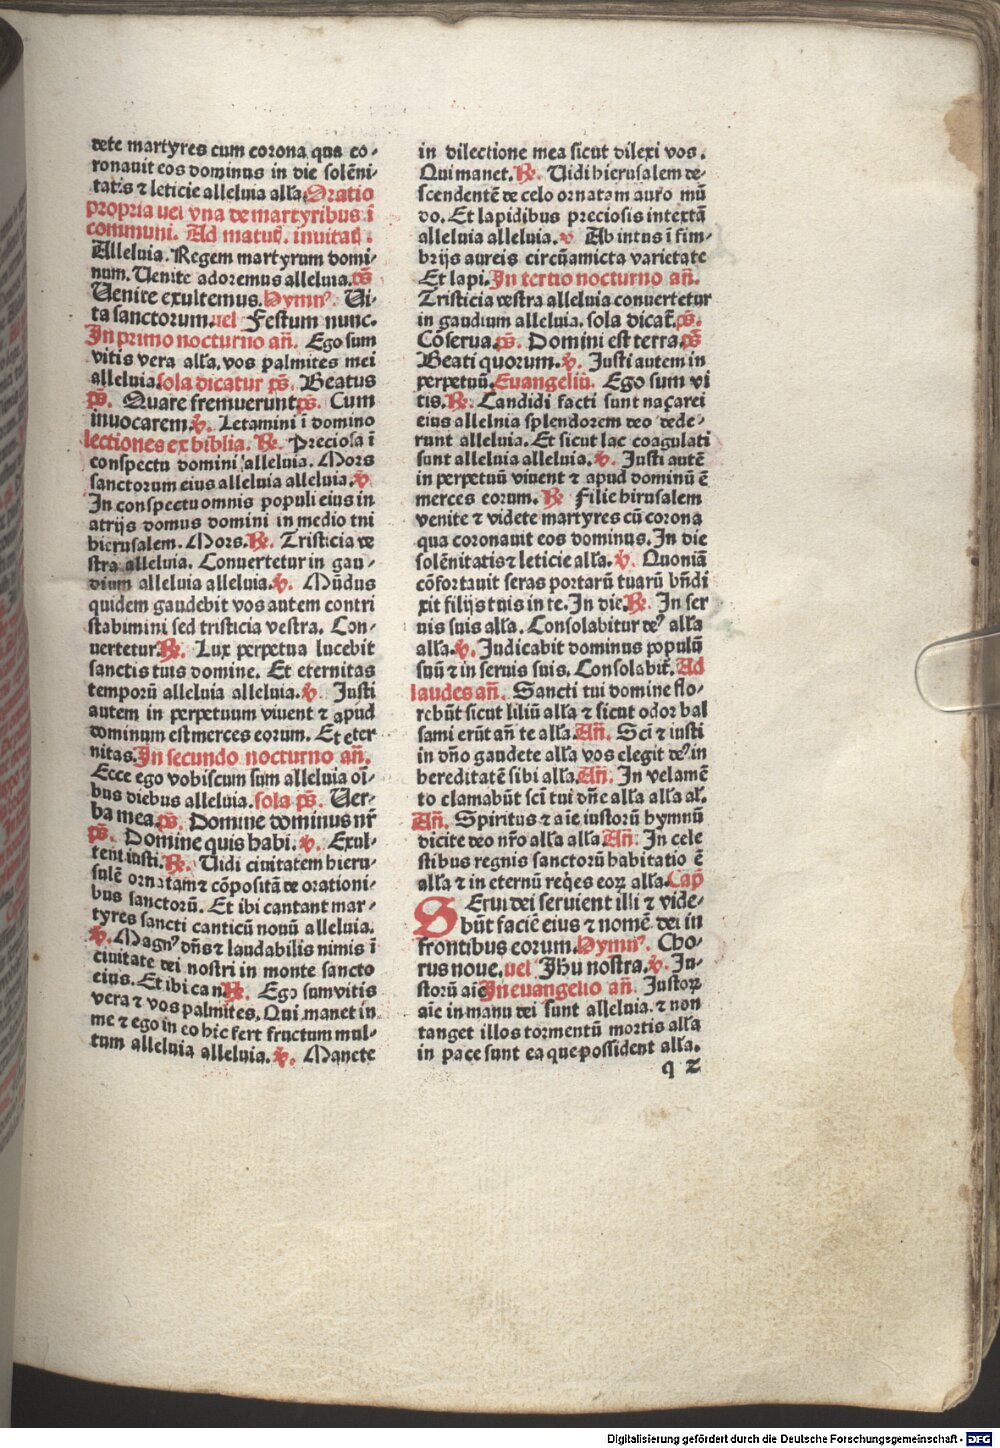 dete martyres cum corona qua co-
ronauit eos dominus in die solēni-
tatis ⁊ leticie alleluia alľa. Oratio
propria uel vna de martyribus ī
communi. Ad matuť. inuitať.
Alleluia. Regem martyrum domi-
num. Uenite adoremus alleluia. ps̄
Uenite exultemus. Hymnꝰ. Ui-
ta sanctorum. uel Festum nunc.
In primo nocturno an̄. Ego sum
vitis vera alľa. vos palmites mei
alleluia. sola dicatur ps̄. Beatus
ps̄. Quare fremuerunt ps̄. Cum
inuocarem. ℣. Letamini ī domino
lectiones ex biblia. ℟. Preciosa ī
conspectu domini alleluia. Mors
sanctorum eius alleluia alleluia. ℣
In conspectu omnis populi eius in
atrijs domus domini in medio tui
hierusalem. Mors. ℟. Tristicia ve
stra alleluia. Conuertetur in gau-
dium alleluia alleluia. ℣. Mūdus
quidem gaudebit vos autem contri
stabimini sed tristicia vestra. Con-
uertetur. ℟. Lux perpetua lucebit
sanctis tuis domine. Et eternitas
temporū alleluia alleluia. ℣. Justi
autem in perpetuum viuent ⁊ apud
dominum est merces eorum. Et eter
nitas. In secundo nocturno an̄.
Ecce ego vobiscum sum alleluia oī-
bus diebus alleluia. sola ps̄. Uer-
ba mea. ps̄. Domine dominus nr̄
ps̄. Domine quis habi. ℣. Exul-
tent iusti. ℟. Uidi ciuitatem hieru-
salē ornatam ⁊ cōpositā de orationi-
bus sanctorū. Et ibi cantant mar-
tyres sancti canticū nouū alleluia.
℣. Magnꝰ dn̄s ⁊ laudabilis nimis ī
ciuitate dei nostri in monte sancto
eius. Et ibi can ℟. Ego sum vitis
vera ⁊ vos palmites. Qui manet in
me ⁊ ego in eo hic fert fructum mul-
tum alleluia alleluia. ℣. Manete
in dilectione mea sicut dilexi vos.
Qui manet. ℟. Uidi hierusalem de-
scendentē de celo ornatam auro mū
do. Et lapidibus preciosis intextā
alleluia alleluia. v Ab intus ī fim-
brijs aureis circūamicta varietate
Et lapi. In tertio nocturno an̄.
Tristicia vestra alleluia conuertetur
in gaudium alleluia. sola dicať. ps̄.
Cōserua. ps̄. Domini est terra. ps̄
Beati quorum. ℣. Justi autem in
perpetuū. Euangeliū. Ego sum vi
tis. ℟. Candidi facti sunt naçarei
eius allelnia splendorem deo dede-
runt alleluia. Et sicut lac coagulati
sunt alleluia alleluia. ℣. Justi autē
in perpetuū viuent ⁊ apud dominū ē
merces eorum. ℟ Filie hirusalem
venite ⁊ videte martyres cū corona
qua coronauit eos dominus. In die
solēnitatis ⁊ leticie alľa. ℣. Quoniā
cōfortauit seras portarū tuarū bn̄di
xit filijs tuis in te. In die. ℟. In ser
uis suis alľa. Consolabitur deꝰ alľa
alľa. ℣. Judicabit dominus populū
suū ⁊ in seruis suis. Consolabiť. Ad
laudes an̄. Sancti tui domine flo-
rebūt sicut liliū alľa ⁊ sicut odor bal
sami erūt an̄ te alľa. An̄. Sci ⁊ iusti
in dn̄o gaudete alľa vos elegit deꝰ in
hereditatē sibi alľa. An̄. In velamē
to clamabūt scī tui dn̄e alľa alľa aľ.
An̄. Spiritus ⁊ aīe iustorū hymnū
dicite deo nr̄o alľa alľa. An̄. In cele
stibus regnis sanctorū habitatio ē
alľa ⁊ in eternū req̇es eoꝝ alľa. Cap̄
SErui dei seruient illi ⁊ vide-
būt faciē eius ⁊ nomē dei in
frontibus eorum. Hymnꝰ. Cho-
rus noue. uel Jhu nostra. ℣. Ju-
storū aīe In euangelio an̄. Justoꝝ
aīe in manu dei sunt alleluia. ⁊ non
tanget illos tormentū mortis alľa
in pace sunt ea que possident alľa.
q 2
Digitalisierung gefördert durch die Deutsche Forschungsgemeinschaft - DFG